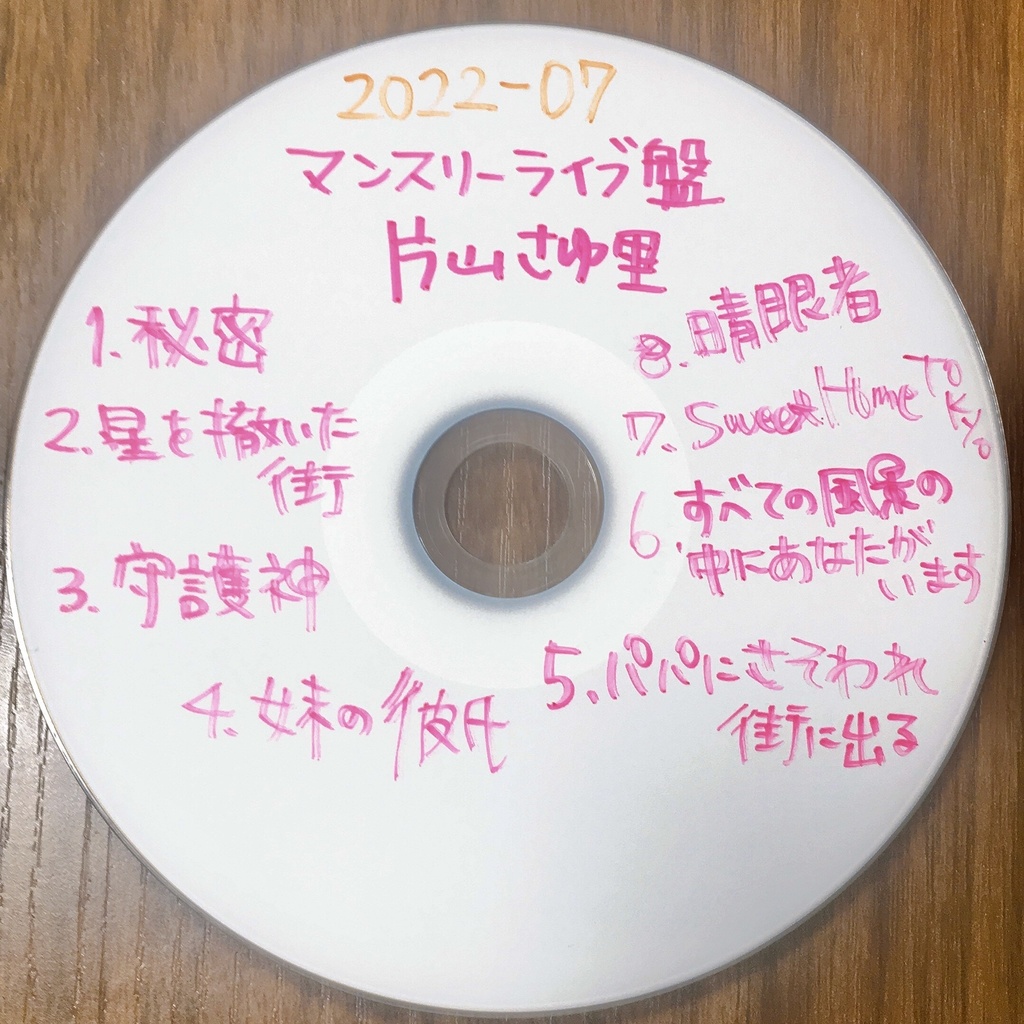 2022-07
マンスリーライブ盤
片山さゆ里
1.秘密
2.星を撤いた
街
3.守護神
4.妹の彼氏
5.パパにさそわれ
街に出る
6.すべての風景の
中にあなたが
います
7.Sweet Home TOKYO
8.晴眼者